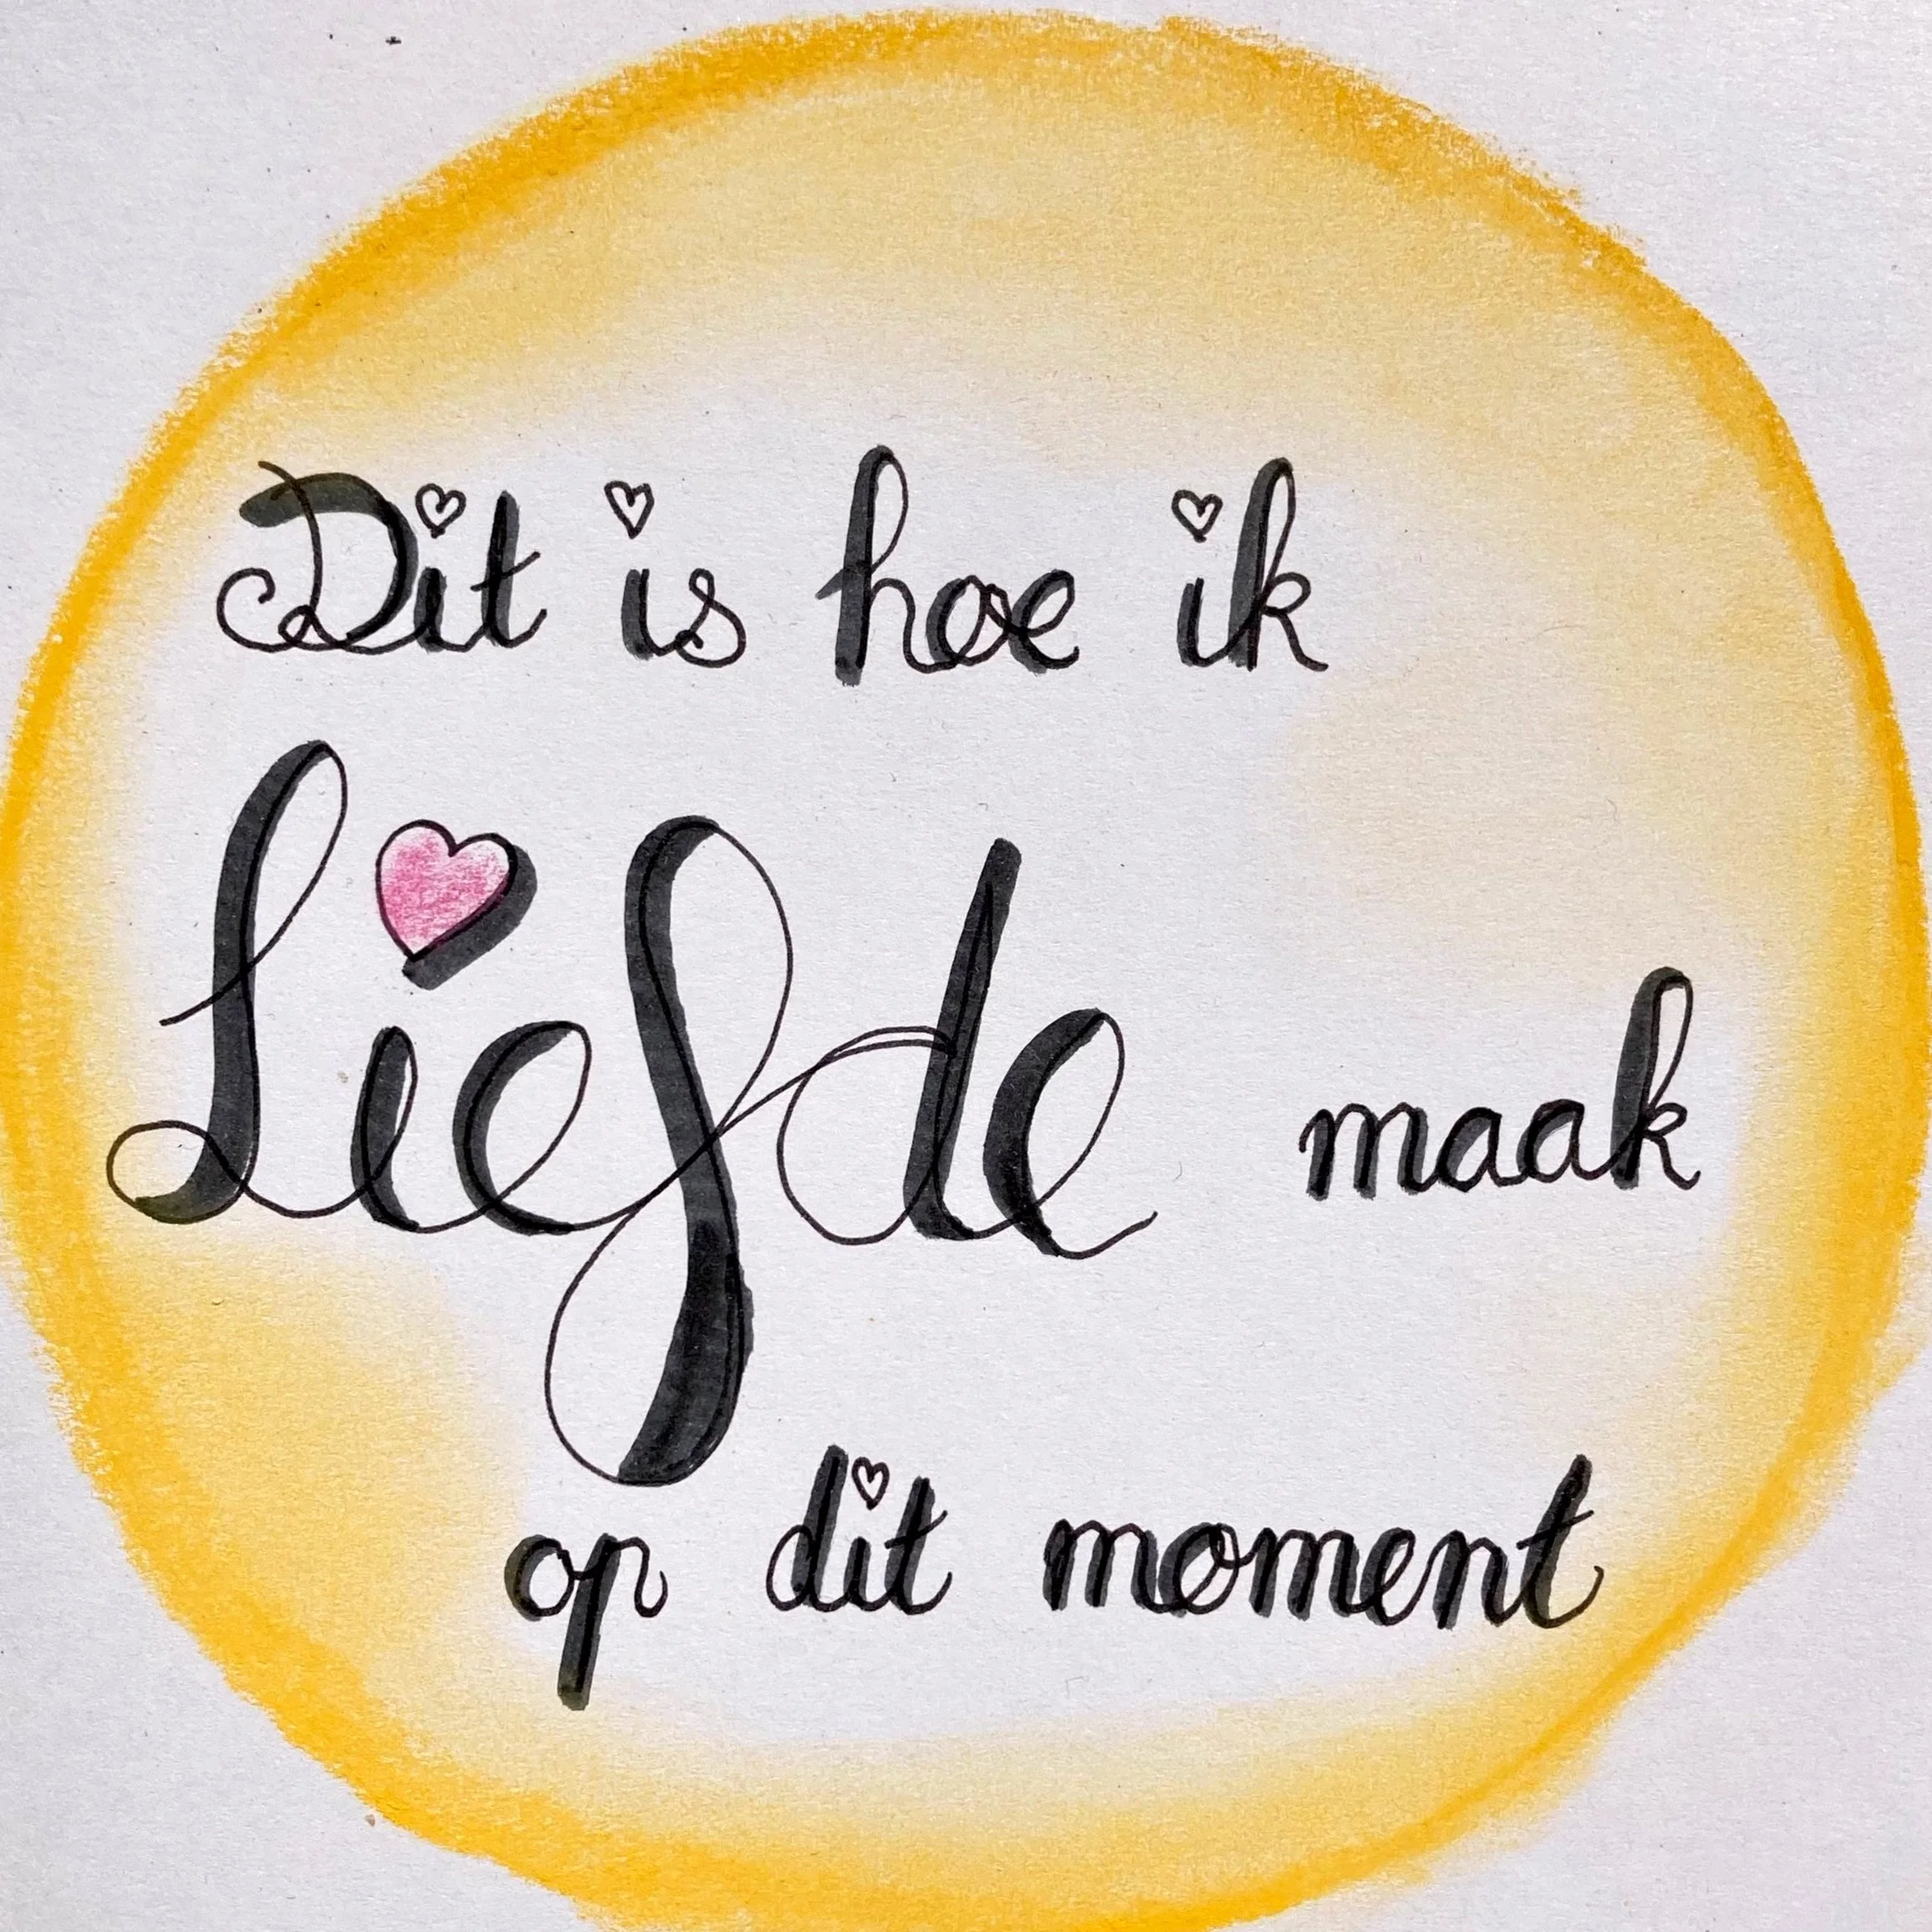 Dit is hoe ik
Liefde maak
op dit moment